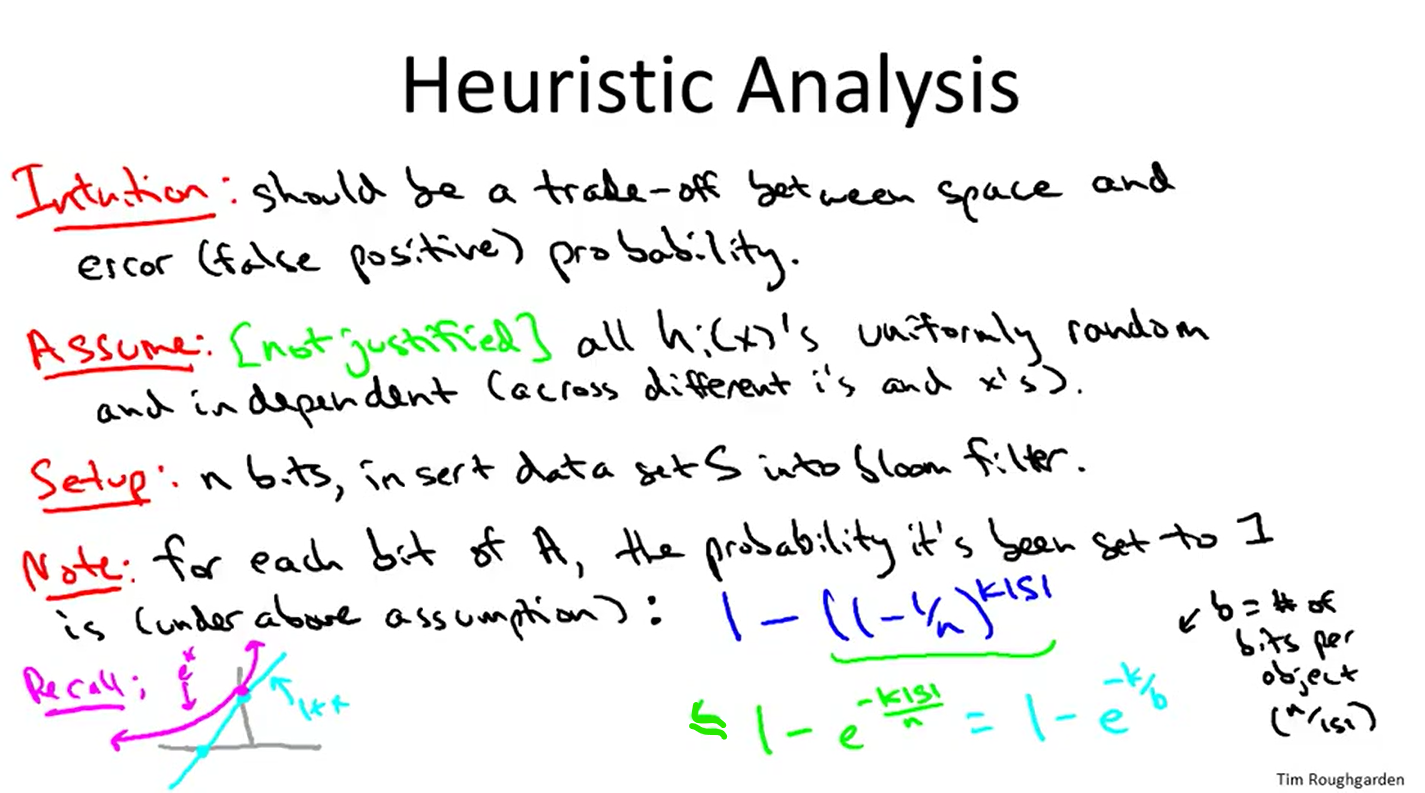 Heuristic Analysis
Intuition: should be a trade-off between space and
error (false positive) probability.
Assume: [not justified] all hᵢ(x)'s uniformly random
and independent (across different i's and x's).
Setup: n bits, insert data set S into bloom filter.
Note: for each bit of A, the probability it's been set to 1
is (under above assumption): 1 - (1 - 1/n)^{k|S|}
↙ b = # of
bits per
object
(n/|S|)
Recall: e^x
1+x
≤ 1 - e^{-k|S|/n} = 1 - e^{-k/b}
Tim Roughgarden